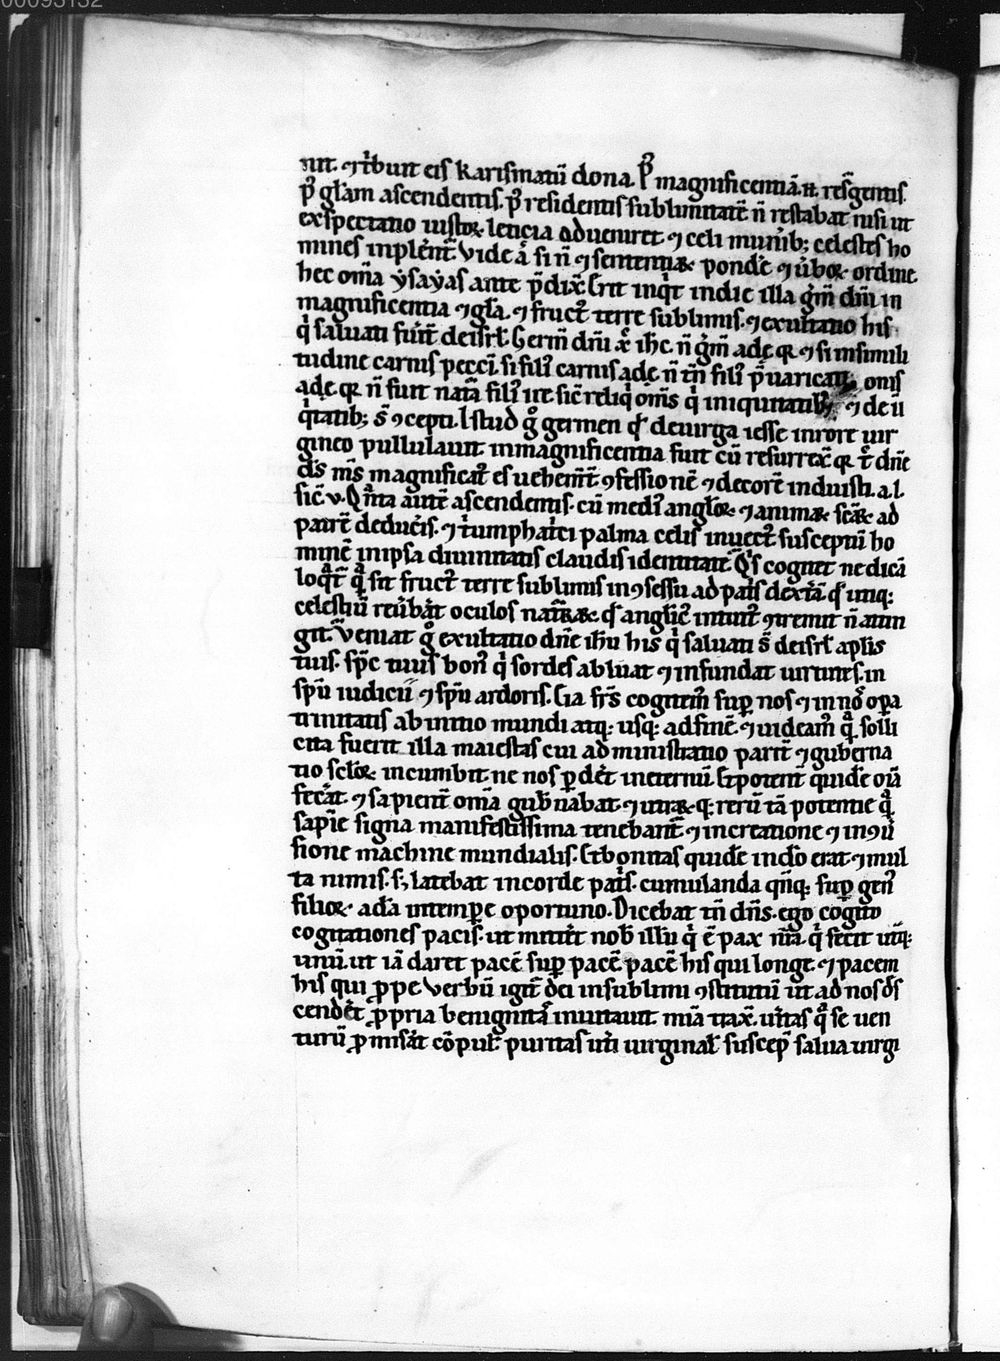 00095132
nit. ⁊ t͛buit eis karismatū dona. P̾ magnificentiā. n. resg̃entis.
p̾ gl̃am ascendentis. p̾ residentis sublimitatē ñ restabat nisi ut
exspectatio iustoꝝ leticia adueniret ⁊ celi munib; celestes ho
mines inplent̃. Vide a͛ si ñ ⁊ sententiaꝝ ponde͛ ⁊ ūboꝝ ordine
hec om̃ia ysayas ante p̃dix̃. Erit inq̇t in die illa g͛m̃ dñi in
magnificentia ⁊ gl̃a. ⁊ fruct᷒ terre sublimis. ⁊ exultatio his
q̇ saluati fuer̃t de isrl̃. Germ̃ dñi xp̃c ih̃c. ñ g͛m̃ ade qꝛ ⁊ si in simili
tudine carnis pecc̃i. si fili᷒ carnis ade. ñ tñ fili᷒ p̃uaricati onis
ade. qꝛ ñ fuit nat͛a fili᷒ ire sic̃ reliq̇ om̃s q̇ in iniquitatib; ⁊ de ii
q̇tatib; s̃ ꝯcepti. Istud g͛ germen qđ de uirga iesse in rore uir
gineo pullulauit in magnificentia fuit cū resurrex̃ qꝛ t̃c dñe
ds̃ ms̃ magnificat᷒ es uehem̃t̃ ꝯfessionē ⁊ decorē induisti. a. l.
sic̃ v. Q͛nta aūtē ascendentis. cū medi᷒ angl̃oꝝ ⁊ animaꝝ sc̃aꝝ ad
patrē deduc͛is. ⁊ t͛umphat͛ci palma celis inuect᷒ susceptū ho
minē in ipsa diuinitatis claudis idemtitate. Q͛s cognet ne dicā
loq̇t̃ q̇ sit fruct᷒ terre sublimis in ꝯsessu ad pat͛s dext͛ā. qđ utiq:
celestiū reūbat̃ oculos nat͛aꝝ. qđ anglic᷒ intuit᷒ ꝯtremit ñ attin
git. Veniat g͛ exultatio dñe ih̃u his q̇ saluati s̃ de isrl̃ aplis
tuis. sp̃c tuus bon᷒ q̇ sordes abluat ⁊ infundat uirtutes. in
sp̃u iudicii ⁊ sp̃u ardoris. Eia frs̃ cognem̃ sup̱ nos ⁊ in nob̃ op̱a
trinitatis ab initio mundi atq: usq: ad finē. ⁊ uideam᷒ q̇ solli
cita fuerit illa maiestas cui administratio parit̃ ⁊ guberna
tio sc̃loꝝ incumbit. ne nos p̱det̃ in eternū. Et potent̃ quidē oīa
fec͛at. ⁊ sapient̃ om̃ia gub̃nabat ⁊ utraꝝ q: rerū tā potentie q̇
sapīe signa manifestissima tenebant̃ ⁊ in creatione ⁊ in ꝯū
sione machine mundialis. Et bonitas quidē in do erat ⁊ mul
ta nimis. s; latebat in corde pat͛s. cumulanda qn̄q: sup̱ gen᷒
filioꝝ adā in temp̱e oportuno. Dicebat tñ dñs. ego cogito
cogitationes pacis. ut mittet̃ nob̃ illū q̇ ē pax nr̃a. q̇ fecit utq͛:
unū. ut iā daret pacē sup̱ pacē pacē his qui longe. ⁊ pacem
his qui ꝓpe. Verbū igit̃ dei in sublimi ꝯstitutū ut ad nos ds̃
cendet̃ ꝓpria benignita͛ inuitauit. mīa trax̃. uītas q̇ se uen
turū ꝓmis͛at cōpul᷒. puritas ut͛i uirginal᷒ suscep̃ salua uirgi